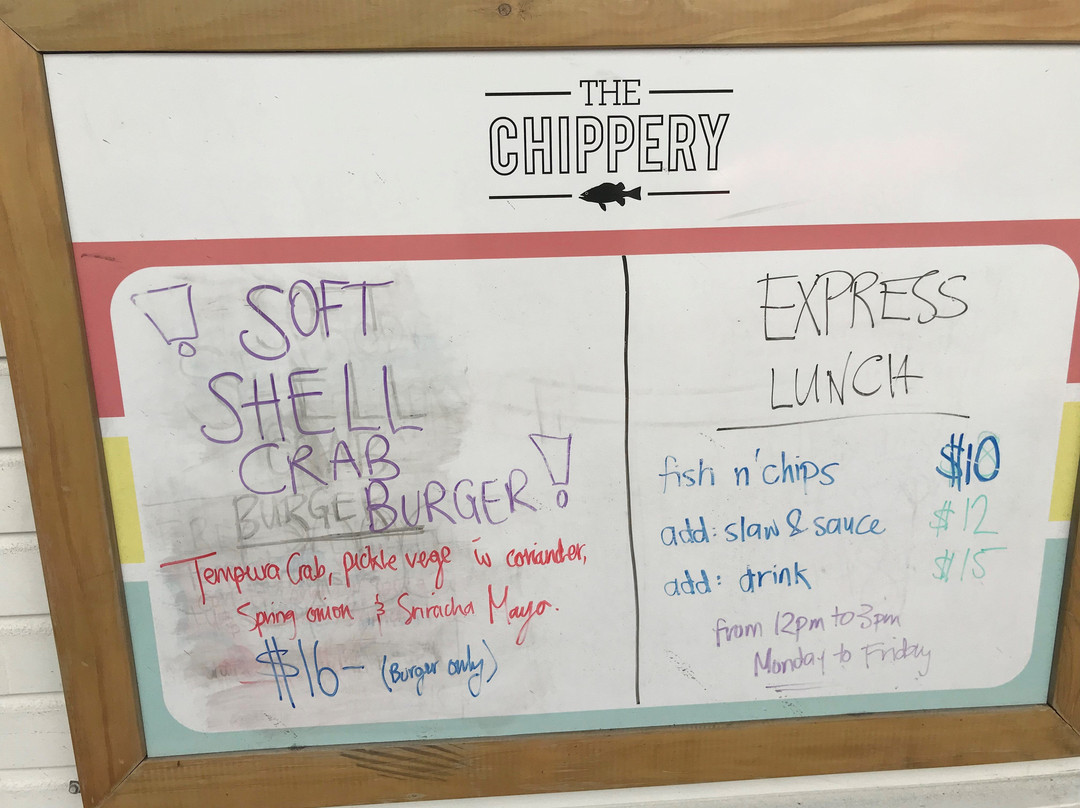 THE
CHIPPERY
! SOFT
SHELL
CRAB
BURGER !
Tempura Crab, pickle vege w coriander,
Spring onion & Sriracha Mayo.
$16- (Burger only)
EXPRESS
LUNCH
fish n' chips $10
add: slaw & sauce $12
add: drink $15
from 12pm to 3pm
Monday to Friday